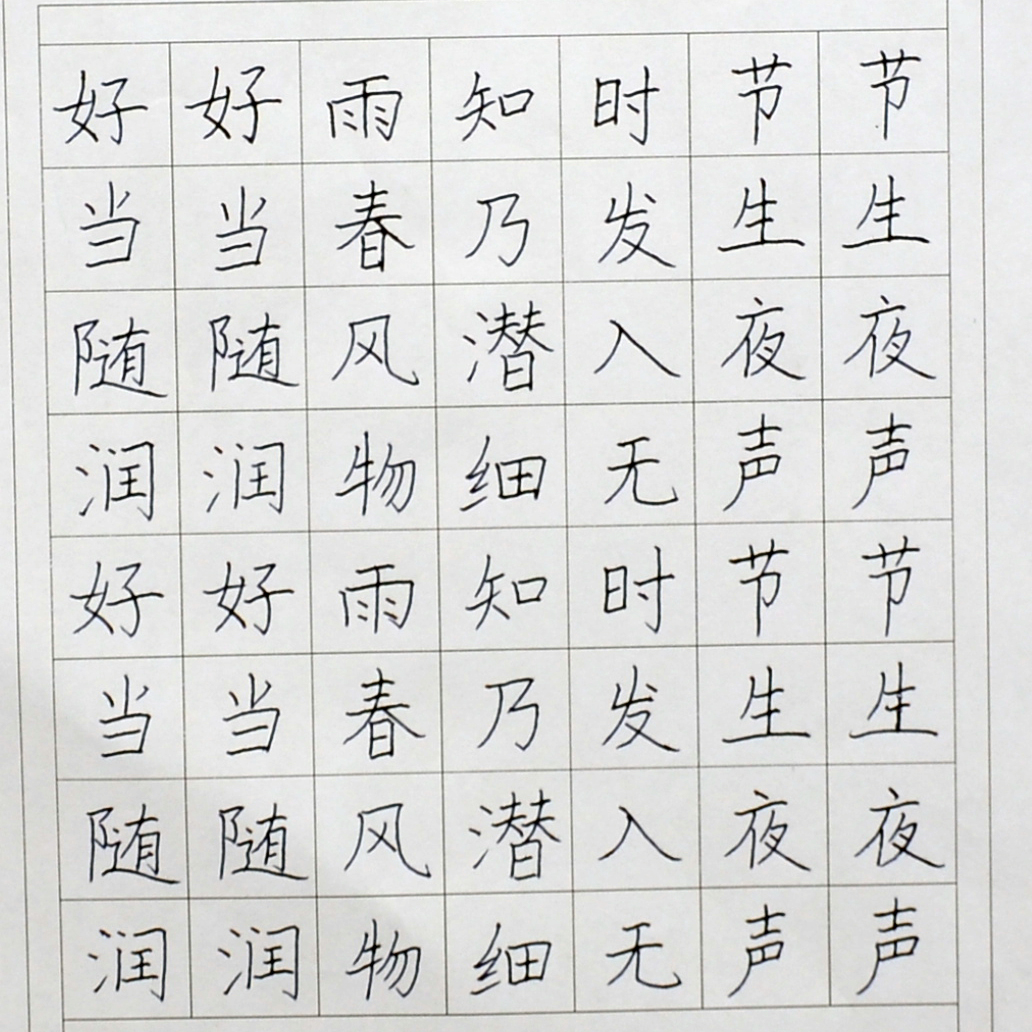 好好雨知时节节
当当春乃发生生
随随风潜入夜夜
润润物细无声声
好好雨知时节节
当当春乃发生生
随随风潜入夜夜
润润物细无声声